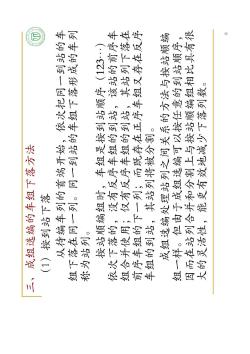 三、成组选编的车组下落方法
(1) 按到站下落
从待编车列的首端开始，依次把同一到站的车
组下落在同一列。同一到站的车组下落形成的车列
称为站列。
按站顺编组时，车组是按到站顺序（123…）
依次下落的，没有反序车组的到站，该站的前序车
组合并使用，仅有反序车组的到站，其站列下落在
前序车组的下一列；而既存在正序车组又存在反序
车组的到站，其站列将被分割。
成组选编处理站列之间关系的方法与按站顺编
组一样。但由于成组选编可以按任意的到站顺序，
因而在站列合并和分割上与按站顺编组相比具有很
大的灵活性，能更有效地减少下落列数。